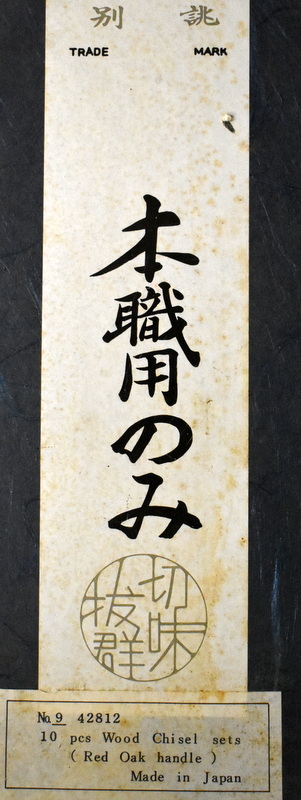 別誂
TRADE MARK
本職用のみ
切味
抜群
No. 9 42812
10 pcs Wood Chisel sets
( Red Oak handle )
Made in Japan